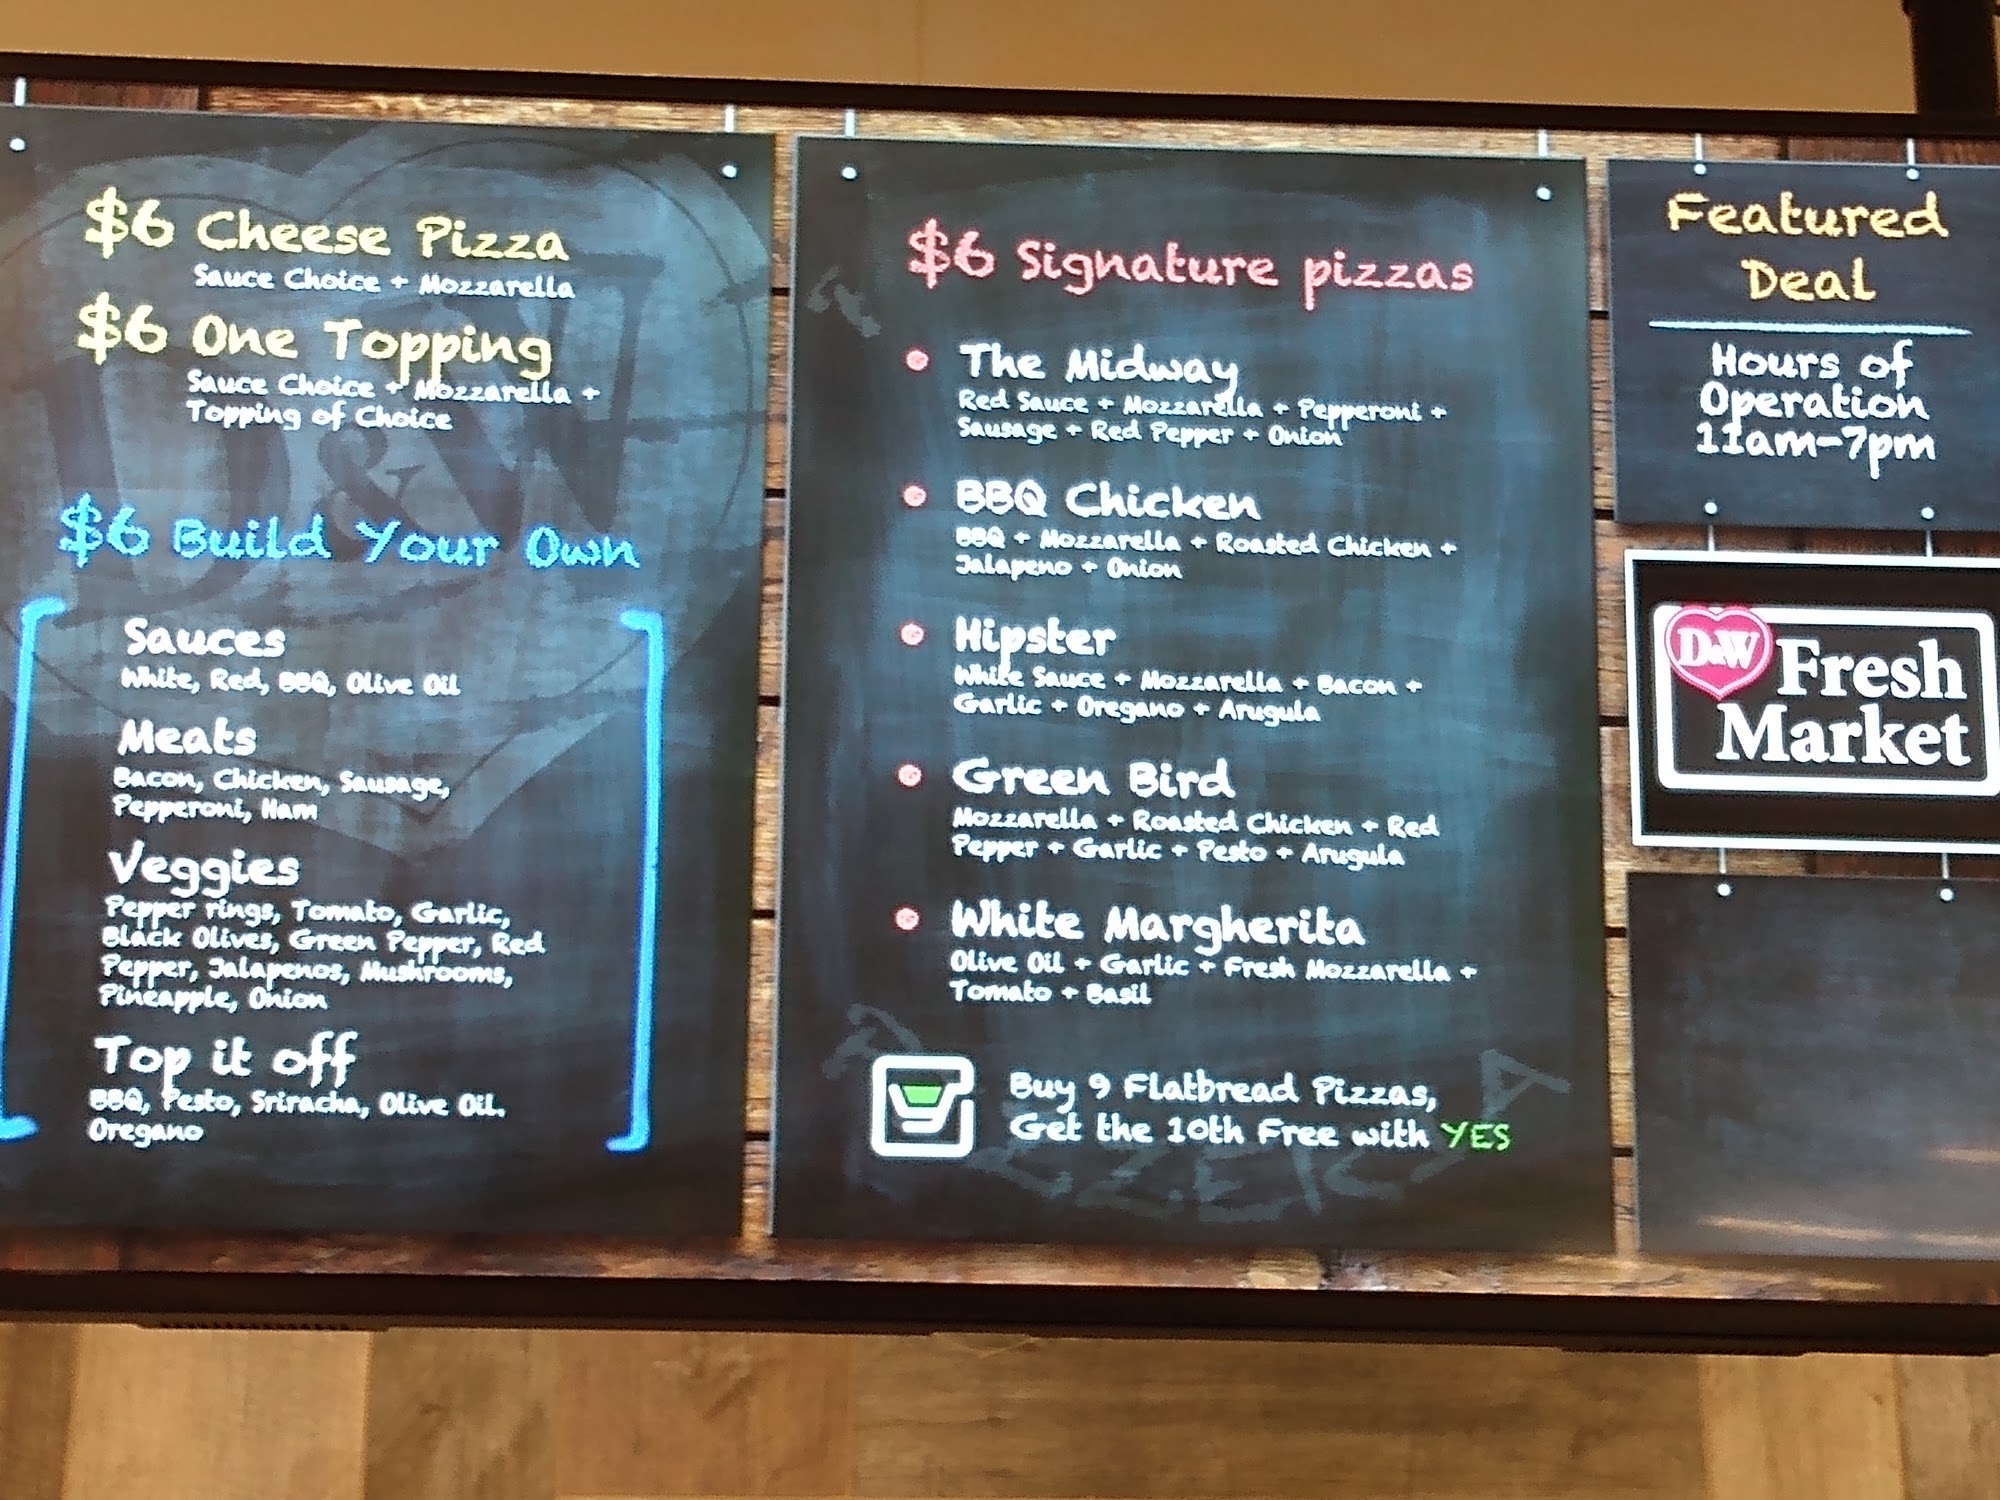 $6 Cheese Pizza
Sauce Choice + Mozzarella
$6 One Topping
Sauce Choice + Mozzarella +
Topping of Choice
D&W
$6 Build Your Own
Sauces
White, Red, BBQ, Olive Oil
Meats
Bacon, Chicken, Sausage,
Pepperoni, Ham
Veggies
Pepper rings, Tomato, Garlic,
Black Olives, Green Pepper, Red
Pepper, Jalapenos, Mushrooms,
Pineapple, Onion
Top it off
BBQ, Pesto, Sriracha, Olive Oil.
Oregano
$6 Signature pizzas
The Midway
Red Sauce + Mozzarella + Pepperoni +
Sausage + Red Pepper + Onion
BBQ Chicken
BBQ + Mozzarella + Roasted Chicken +
Jalapeno + Onion
Hipster
White Sauce + Mozzarella + Bacon +
Garlic + Oregano + Arugula
Green Bird
Mozzarella + Roasted Chicken + Red
Pepper + Garlic + Pesto + Arugula
White Margherita
Olive Oil + Garlic + Fresh Mozzarella +
Tomato + Basil
Buy 9 Flatbread Pizzas,
Get the 10th Free with YES
Featured
Deal
Hours of
Operation
11am-7pm
D&W Fresh
Market